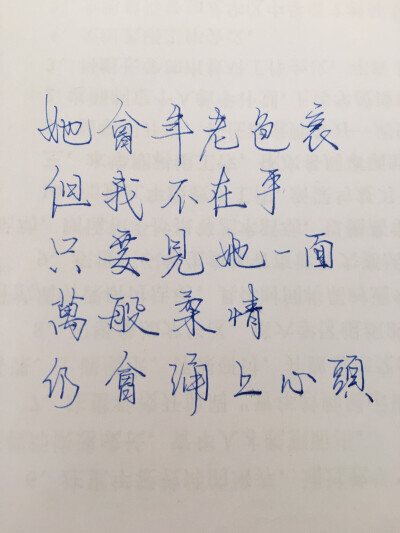 她會年老色衰
但我不在乎
只要見她一面
萬般柔情
仍會涌上心頭